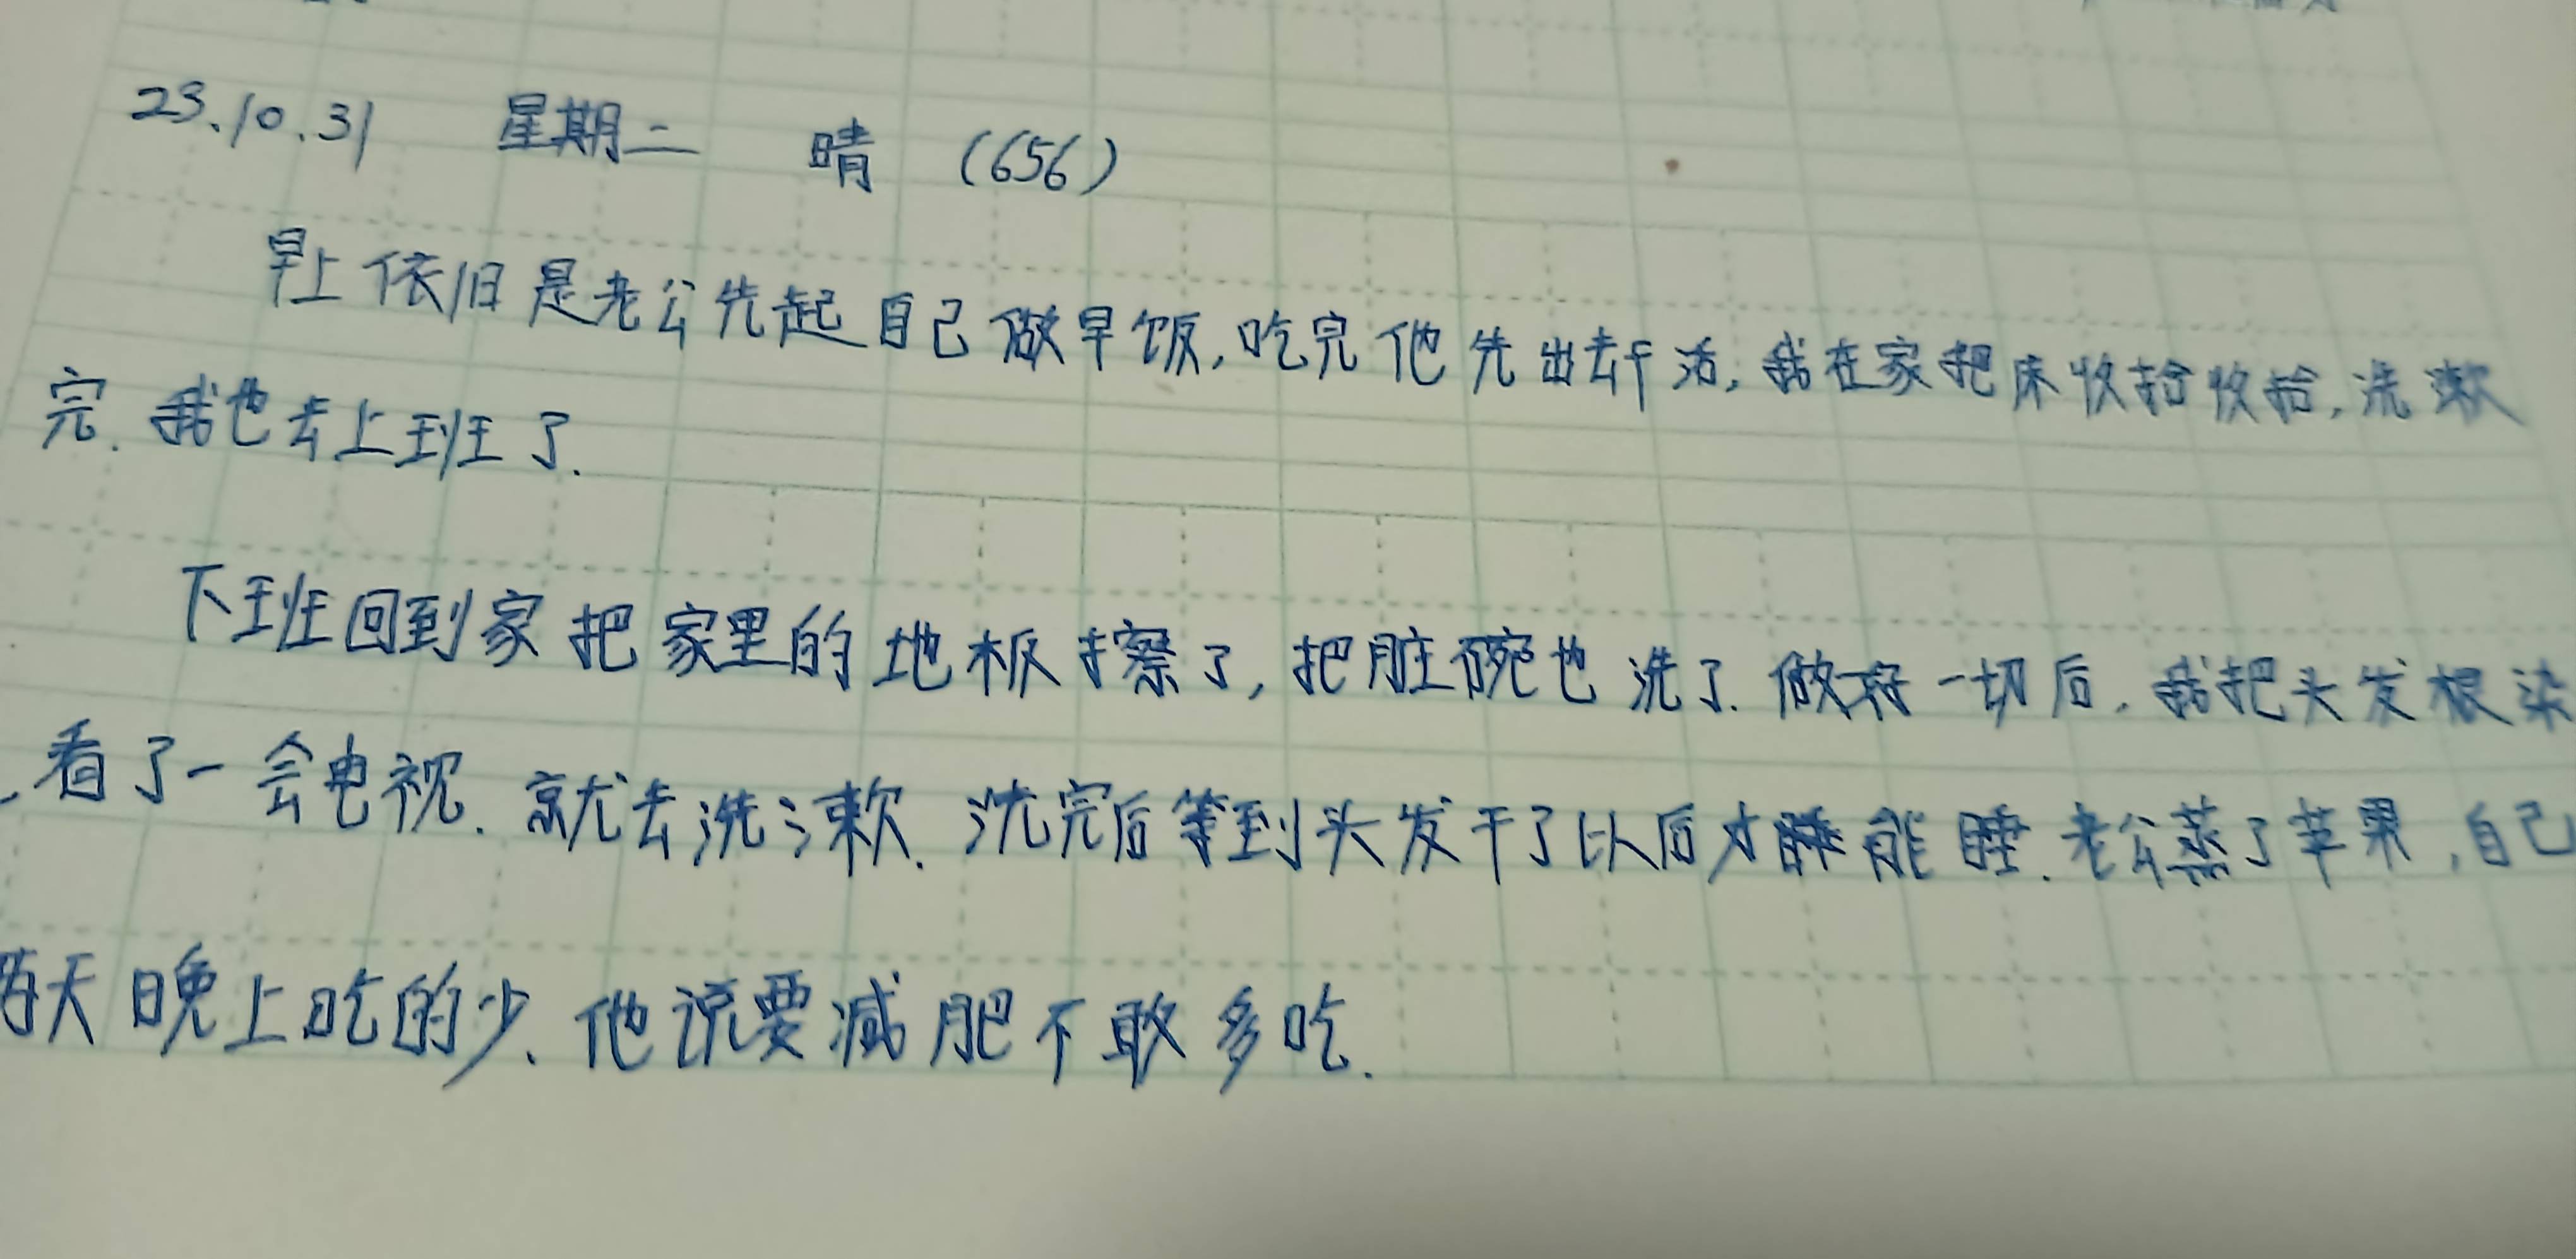 23.10.31 星期二 晴 (656)
早上依旧是老公先起自己做早饭,吃完他先出去干活,我在家把床收拾收拾,洗漱
完.我也去上班了.
下班回到家把家里的地板擦了,把脏碗也洗了.做好一切后.我把头发根染
看了一会电视.就去洗漱.洗完后等到头发干了以后才能睡.老公蒸了苹果,自己
昨天晚上吃的少、他说要减肥不敢多吃.